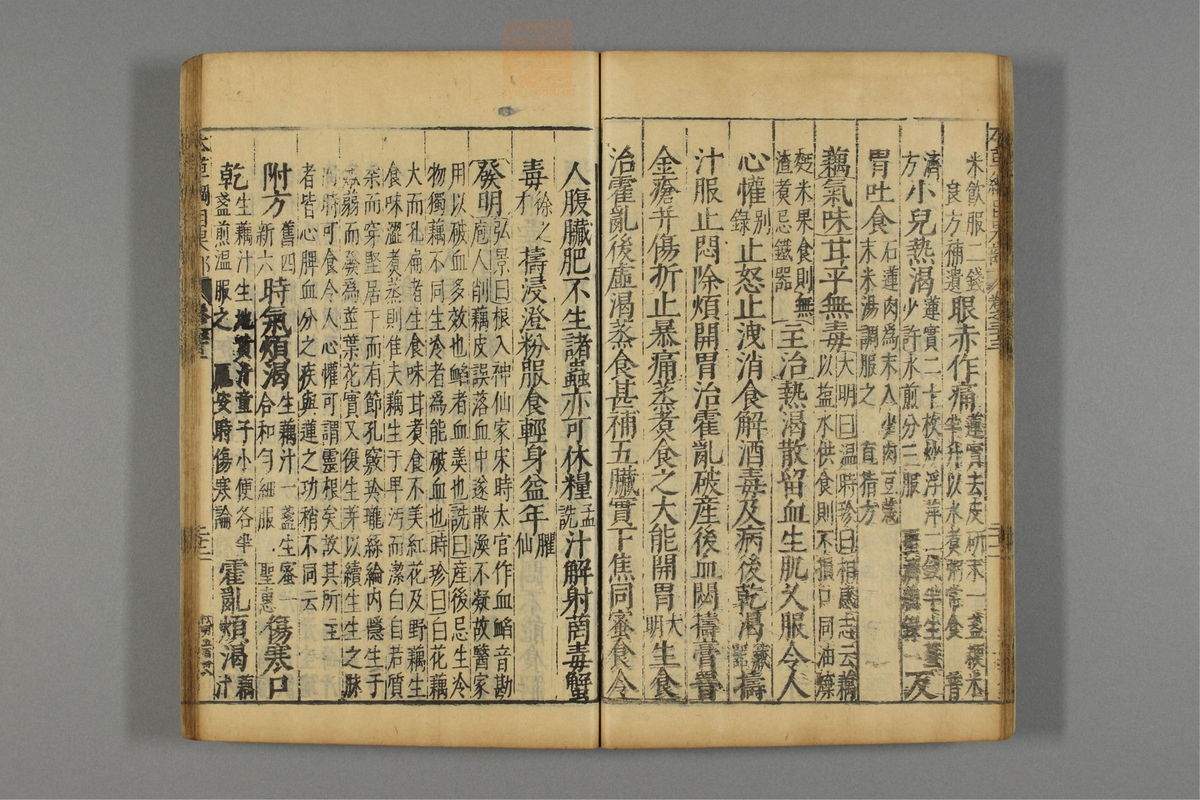 米飲服二錢
良方補遺
眼赤作痛
蓮實去皮研末一盞粳米
半升以水煮粥常食 普
濟
方
小兒熱渴
蓮實二十枚炒浮萍二錢半生薑
少許水煎分三服 聖濟總錄
反
胃吐食
石蓮肉為末入少肉豆蔻
末米湯調服之 直指方
藕氣味甘平無毒
大明曰温時珍曰相感志云藕
以盐水供食則不損口同油煠
麪米果食則無
渣煮忌鐵器
主治熱渴散留血生肌久服令人
心懽
别
錄
止怒止洩消食解酒毒及病後乾渴
藏
器
擣
汁服止悶除煩開胃治霍亂破産後血悶擣膏罯
金瘡并傷折止暴痛蒸煮食之大能開胃
大
明
生食
治霍亂後虚渴蒸食甚補五臟實下焦同蜜食令
人腹臟肥不生諸蟲亦可休糧
孟
詵
汁解射䒷毒蟹
毒
徐之
才
擣浸澄粉服食輕身益年
臞
仙
發明
弘景曰根入神仙家宋時太官作血䘓音勘
庖人削藕皮誤落血中遂散渙不凝故醫家
用以破血多效也䘓者血羹也詵曰産後忌生冷
物獨藕不同生冷者為能破血也時珍曰白花藕
大而孔扁者生食味甘煮食不美紅花及野藕生
食味澀煮蒸則佳夫藕生于卑污而潔白自若質
柔而穿堅居下而有節孔竅玲瓏絲綸内隱生于
嫩弱而發為莖葉花實又復生芽以續生生之脉
四時可食令人心懽可謂靈根矣故其所主
者皆心脾血分之疾與蓮之功稍不同云
附方
舊四
新六
時氣煩渴
生藕汁一盞生蜜一
合和勻細服 聖惠
傷寒口
乾
生藕汁生地黄汁童子小便各半
盞煎温服之 龎安時傷寒論
霍亂煩渴
藕
汁
本草綱目果部